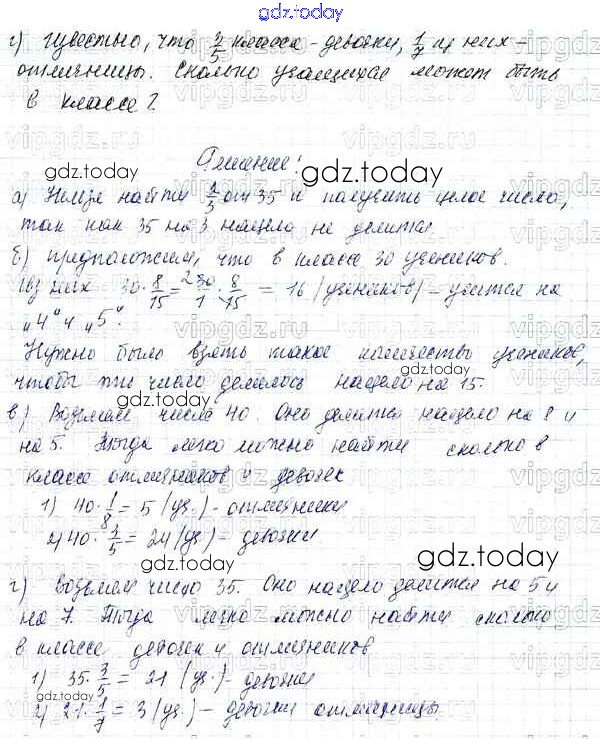 gdz.today
г) известно, что 3/5 класса - девочки, 1/7 из них -
отличницы. Сколько учащихся может быть
в классе?
Решение:
gdz.today
gdz.today
а) Нельзя найти 2/3 от 35 и получить целое число,
так как 35 на 3 нацело не делится.
б) предположим, что в классе 30 учеников.
Из них 30 · 8/15 = 30/1 · 8/15 = 16 (учеников) - учится на
"4" и "5".
Нужно было взять такое количество учеников,
чтобы это число делилось нацело на 15.
gdz.today
gdz.today
в) Возьмём число 40. Оно делится нацело на 8 и
на 5. Тогда легко можно найти сколько в
классе отличников и девочек
1) 40 · 1/8 = 5 (уч.) - отличники
2) 40 · 3/5 = 24 (уч.) - девочки
gdz.today
г) возьмём число 35. Оно нацело делится на 5 и
на 7. Тогда легко можно найти сколько
в классе девочек и отличников
1) 35 · 3/5 = 21 (уч.) - девочки
2) 21 · 1/7 = 3 (уч.) - девочки отличницы
gdz.today
gdz.today